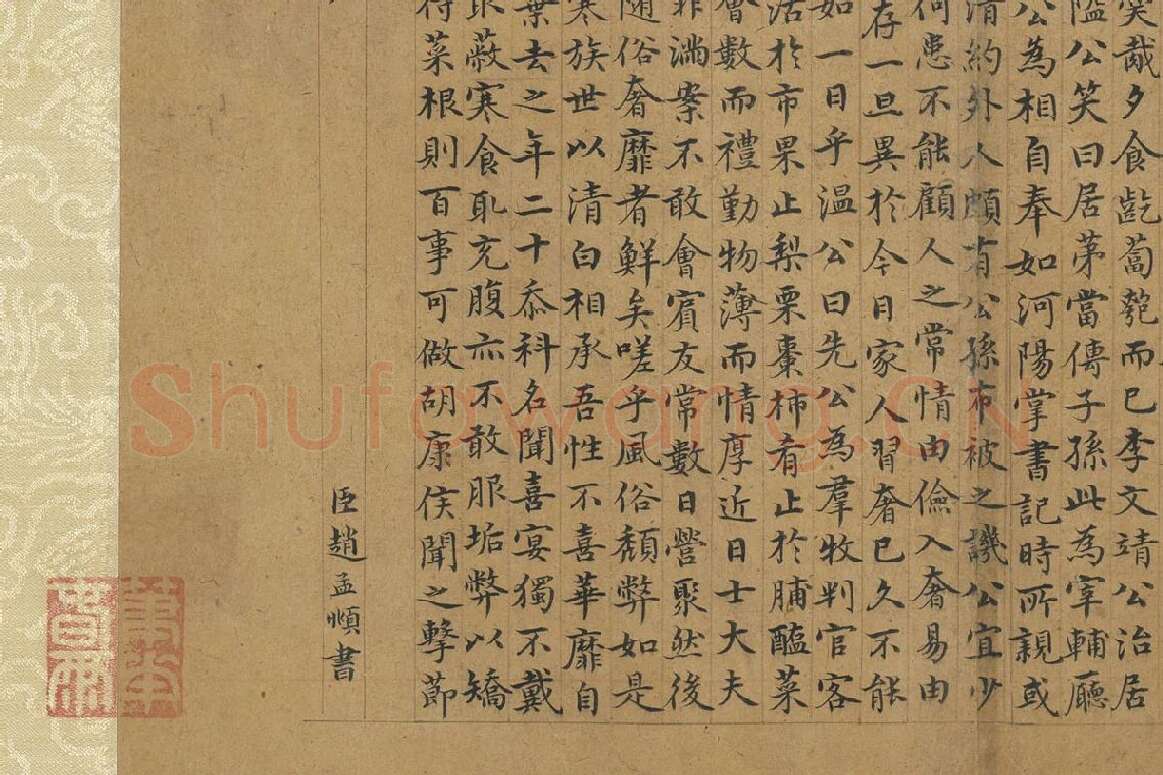 胾夕食齕蔔匏而已李文靖公治居
隘公笑曰居第當傳子孫此為宰輔廳
公為相自奉如河陽掌書記時所親或
清約外人頗有公孫布被之譏公宜少
何患不能顧人之常情由儉入奢易由
存一旦異於今日家人習奢已久不能
如一日乎溫公曰先公為羣牧判官客
沽於市果止梨栗棗柿肴止於脯醢菜
會數而禮勤物薄而情厚近日士大夫
非滿案不敢會賓友常數日營聚然後
隨俗奢靡者鮮矣嗟乎風俗頹弊如是
寒族世以清白相承吾性不喜華靡自
棄去之年二十忝科名聞喜宴獨不戴
取蔽寒食取充腹亦不敢服垢弊以矯
得菜根則百事可做胡康侯聞之擊節
臣趙孟頫書
Shufawang.CN